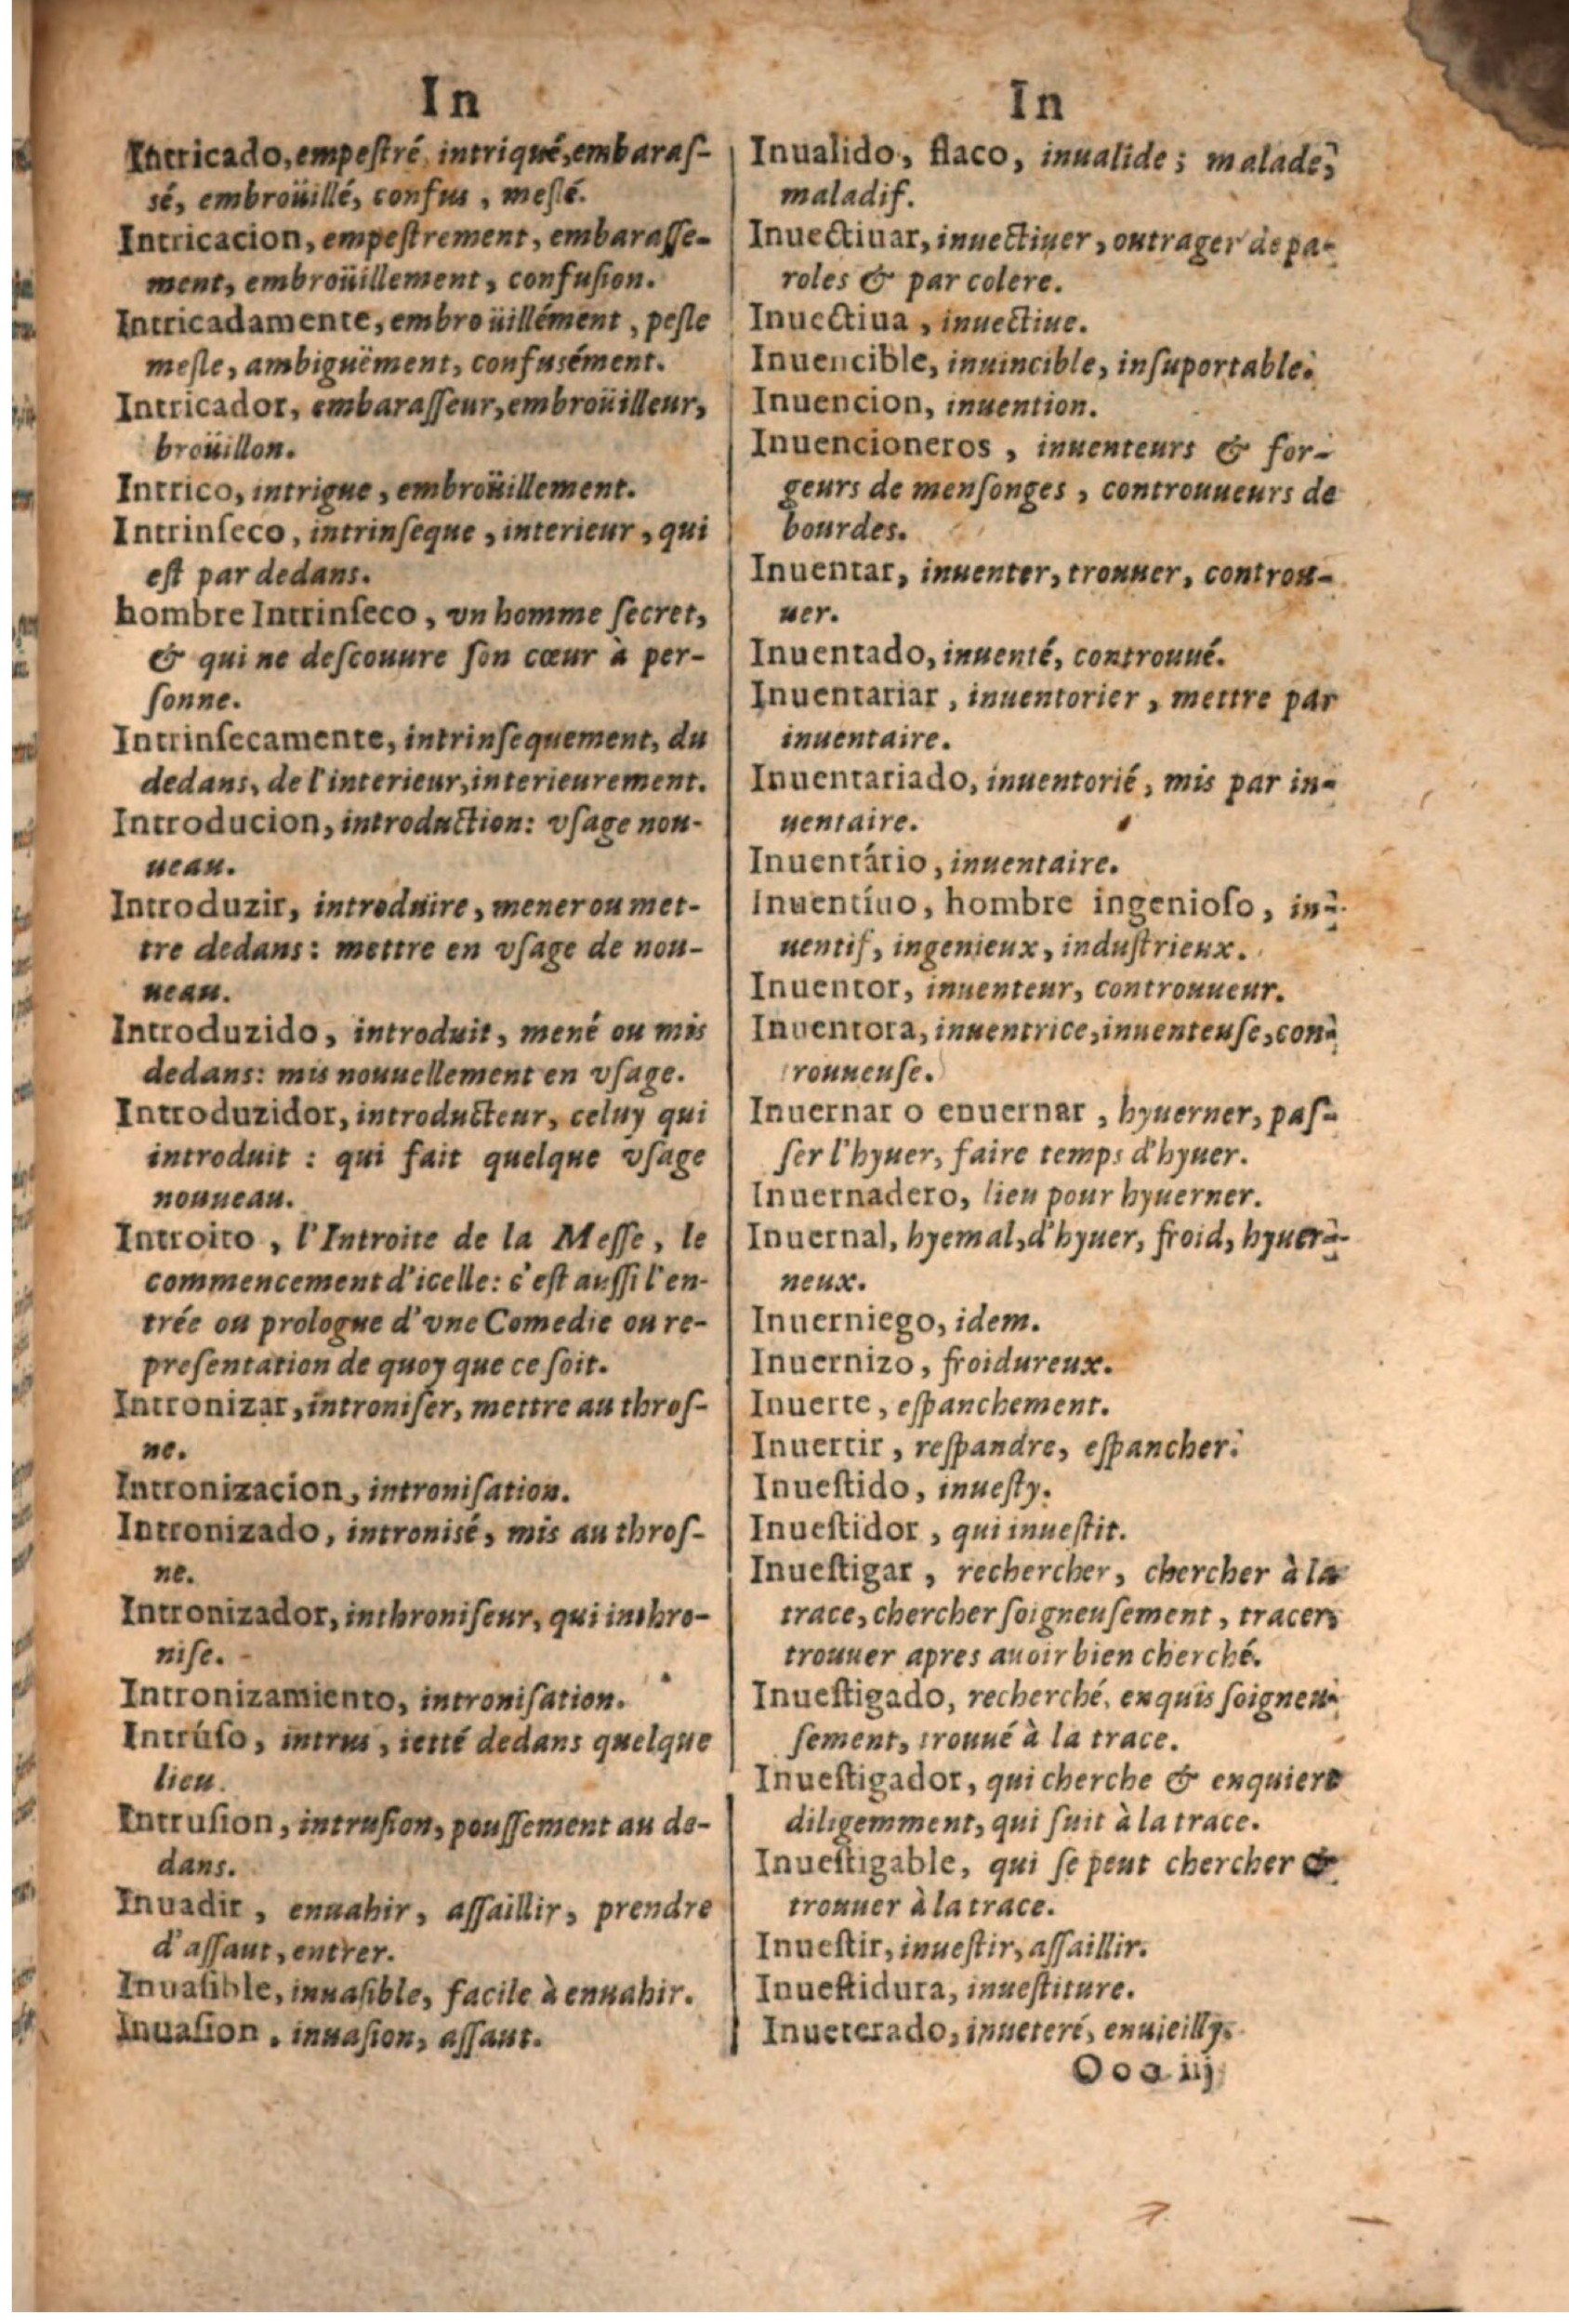 In
Intricado, empeſtré, intriqué, embaraſ-
sé, embroüillé, confus, meſlé.
Intricacion, empeſtrement, embaraſſe-
ment, embroüillement, confuſion.
Intricadamente, embroüillément, peſle
meſle, ambiguëment, confusément.
Intricador, embaraſſeur, embroüilleur,
broüillon.
Intrico, intrigue, embroüillement.
Intrinſeco, intrinſeque, interieur, qui
eſt par dedans.
hombre Intrinſeco, vn homme ſecret,
& qui ne deſcouure ſon cœur à per-
ſonne.
Intrinſecamente, intrinſequement, du
dedans, de l'interieur, interieurement.
Introducion, introduction: vſage nou-
ueau.
Introduzir, introduire, mener ou met-
tre dedans: mettre en vſage de nou-
ueau.
Introduzido, introduit, mené ou mis
dedans: mis nouuellement en vſage.
Introduzidor, introducteur, celuy qui
introduit : qui fait quelque vſage
nouueau.
Introito, l'Introite de la Meſſe, le
commencement d'icelle: c'eſt auſſi l'en-
trée ou prologue d'vne Comedie ou re-
preſentation de quoy que ce ſoit.
Intronizar, introniſer, mettre au throſ-
ne.
Intronizacion, introniſation.
Intronizado, introniſé, mis au throſ-
ne.
Intronizador, inthroniſeur, qui inthro-
niſe.
Intronizamiento, introniſation.
Intrúſo, intrus, ietté dedans quelque
lieu.
Intruſion, intruſion, pouſſement au de-
dans.
Inuadir, enuahir, aſſaillir, prendre
d'aſſaut, entrer.
Inuaſible, inuaſible, facile à enuahir.
Inuaſion, inuaſion, aſſaut.
In
Inualido, flaco, inualide; malade,
maladif.
Inuectiuar, inuectiuer, outrager de pa-
roles & par colere.
Inuectiua, inuectiue.
Inuencible, inuincible, inſuportable.
Inuencion, inuention.
Inuencioneros, inuenteurs & for-
geurs de menſonges, controuueurs de
bourdes.
Inuentar, inuenter, trouuer, controu-
uer.
Inuentado, inuenté, controuué.
Inuentariar, inuentorier, mettre par
inuentaire.
Inuentariado, inuentorié, mis par in-
uentaire.
Inuentário, inuentaire.
Inuentíuo, hombre ingenioſo, in-
uentif, ingenieux, induſtrieux.
Inuentor, inuenteur, controuueur.
Inuentora, inuentrice, inuenteuſe, con-
rouueuſe.
Inuernar o enuernar, hyuerner, paſ-
ſer l'hyuer, faire temps d'hyuer.
Inuernadero, lieu pour hyuerner.
Inuernal, hyemal, d'hyuer, froid, hyuer-
neux.
Inuerniego, idem.
Inuernizo, froidureux.
Inuerte, eſpanchement.
Inuertir, reſpandre, eſpancher.
Inueſtido, inueſty.
Inueſtidor, qui inueſtit.
Inueſtigar, rechercher, chercher à la
trace, chercher ſoigneuſement, tracer,
trouuer apres auoir bien cherché.
Inueſtigado, recherché, enquis ſoigneu-
ſement, trouué à la trace.
Inueſtigador, qui cherche & enquiert
diligemment, qui ſuit à la trace.
Inueſtigable, qui ſe peut chercher &
trouuer à la trace.
Inueſtir, inueſtir, aſſaillir.
Inueſtidura, inueſtiture.
Inueterado, inueteré, enuieilly.
Ooo iij